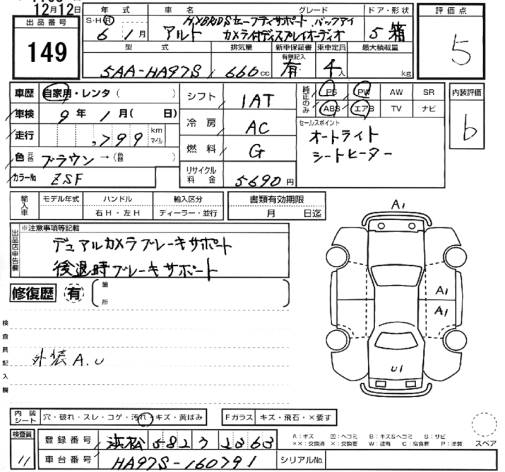 12月12日
出品番号
149
年式
車名
グレード
ドア・形状
評価点
S・H・R
6年1月
アルト
HYBRID Sセーフティサポート バックアイ
カメラ付ディスプレイオーディオ
5 箱
5
型式
排気量
新車保証書
有無記入
乗車定員
最大積載量
5AA-HA97S
660cc
有
4人
kg
車歴
自家用・レンタ( )
車検
9年1月( 日)
走行
,799 km
マイル
色
元色
ブラウン→(色)
カラーNo
ZSF
シフト
1AT
冷房
AC
燃料
G
リサイクル料金
5690円
純正のみ
PS
PW
AW
SR
ABS
エアB
TV
ナビ
セールスポイント
オートライト
シートヒーター
内装評価
b
輸入車
モデル年式
ハンドル
右H・左H
輸入区分
ディーラー・並行
書類有効期限
月 日迄
出品店申告欄
※注意事項等記載
デュアルカメラブレーキサポート
後退時ブレーキサポート
修復歴
有
箇所
検査員記入欄
外装 A.U
A1
A1
A1
U1
内装
シート
穴・破れ・スレ・コゲ・汚れ・キズ・黄ばみ
Fガラス
キズ・飛石・×要す
スペア
検査員
11
登録番号
浜松 582 う 2363
車台番号
HA97S-160791
シリアルNo